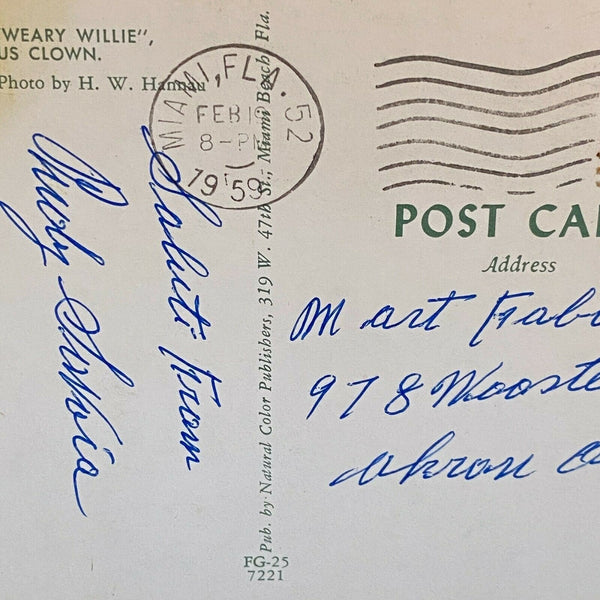 "WEARY WILLIE",
US CLOWN.
Photo by H. W. Hannau
MIAMI, FLA. 52
FEB
8-PM
1959
Saluti From
Rudy
Pub. by Natural Color Publishers, 319 W. 47th St., Miami Beach Fla.
FG-25
7221
POST CA
Address
M art Fab
978 Wooste
Akron O